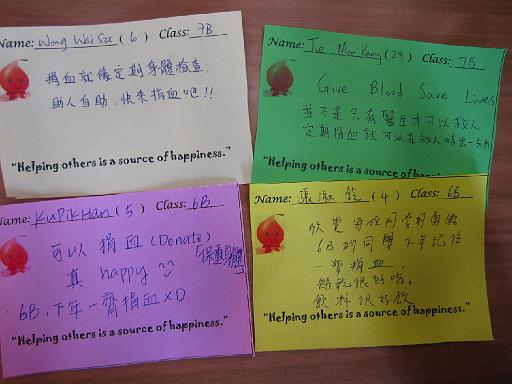 Name: Wong Wai Sze ( 6 ) Class: 7B
捐血就像定期身體檢查,
助人自助, 快來捐血吧!!
"Helping others is a source of happiness."
Name: Tse Man Kang ( 24 ) Class: 7B
Give Blood Save Lives
並不是只有醫生才可以救人
定期捐血就可以在救人時出一分力
"Helping others is a source of happiness."
Name: Ku Pik Han ( 5 ) Class: 6B
可以捐血 (Donate)
真 happy
「保重身體」
6B, 下年一齊捐血 XD
"Helping others is a source of happiness."
Name: 張淑 ( 4 ) Class: 6B
欣賞每位同學的勇氣
6B的同學下年記住
一齊捐血,
餅乾很好吃,
飲料很好飲
"Helping others is a source of happiness."